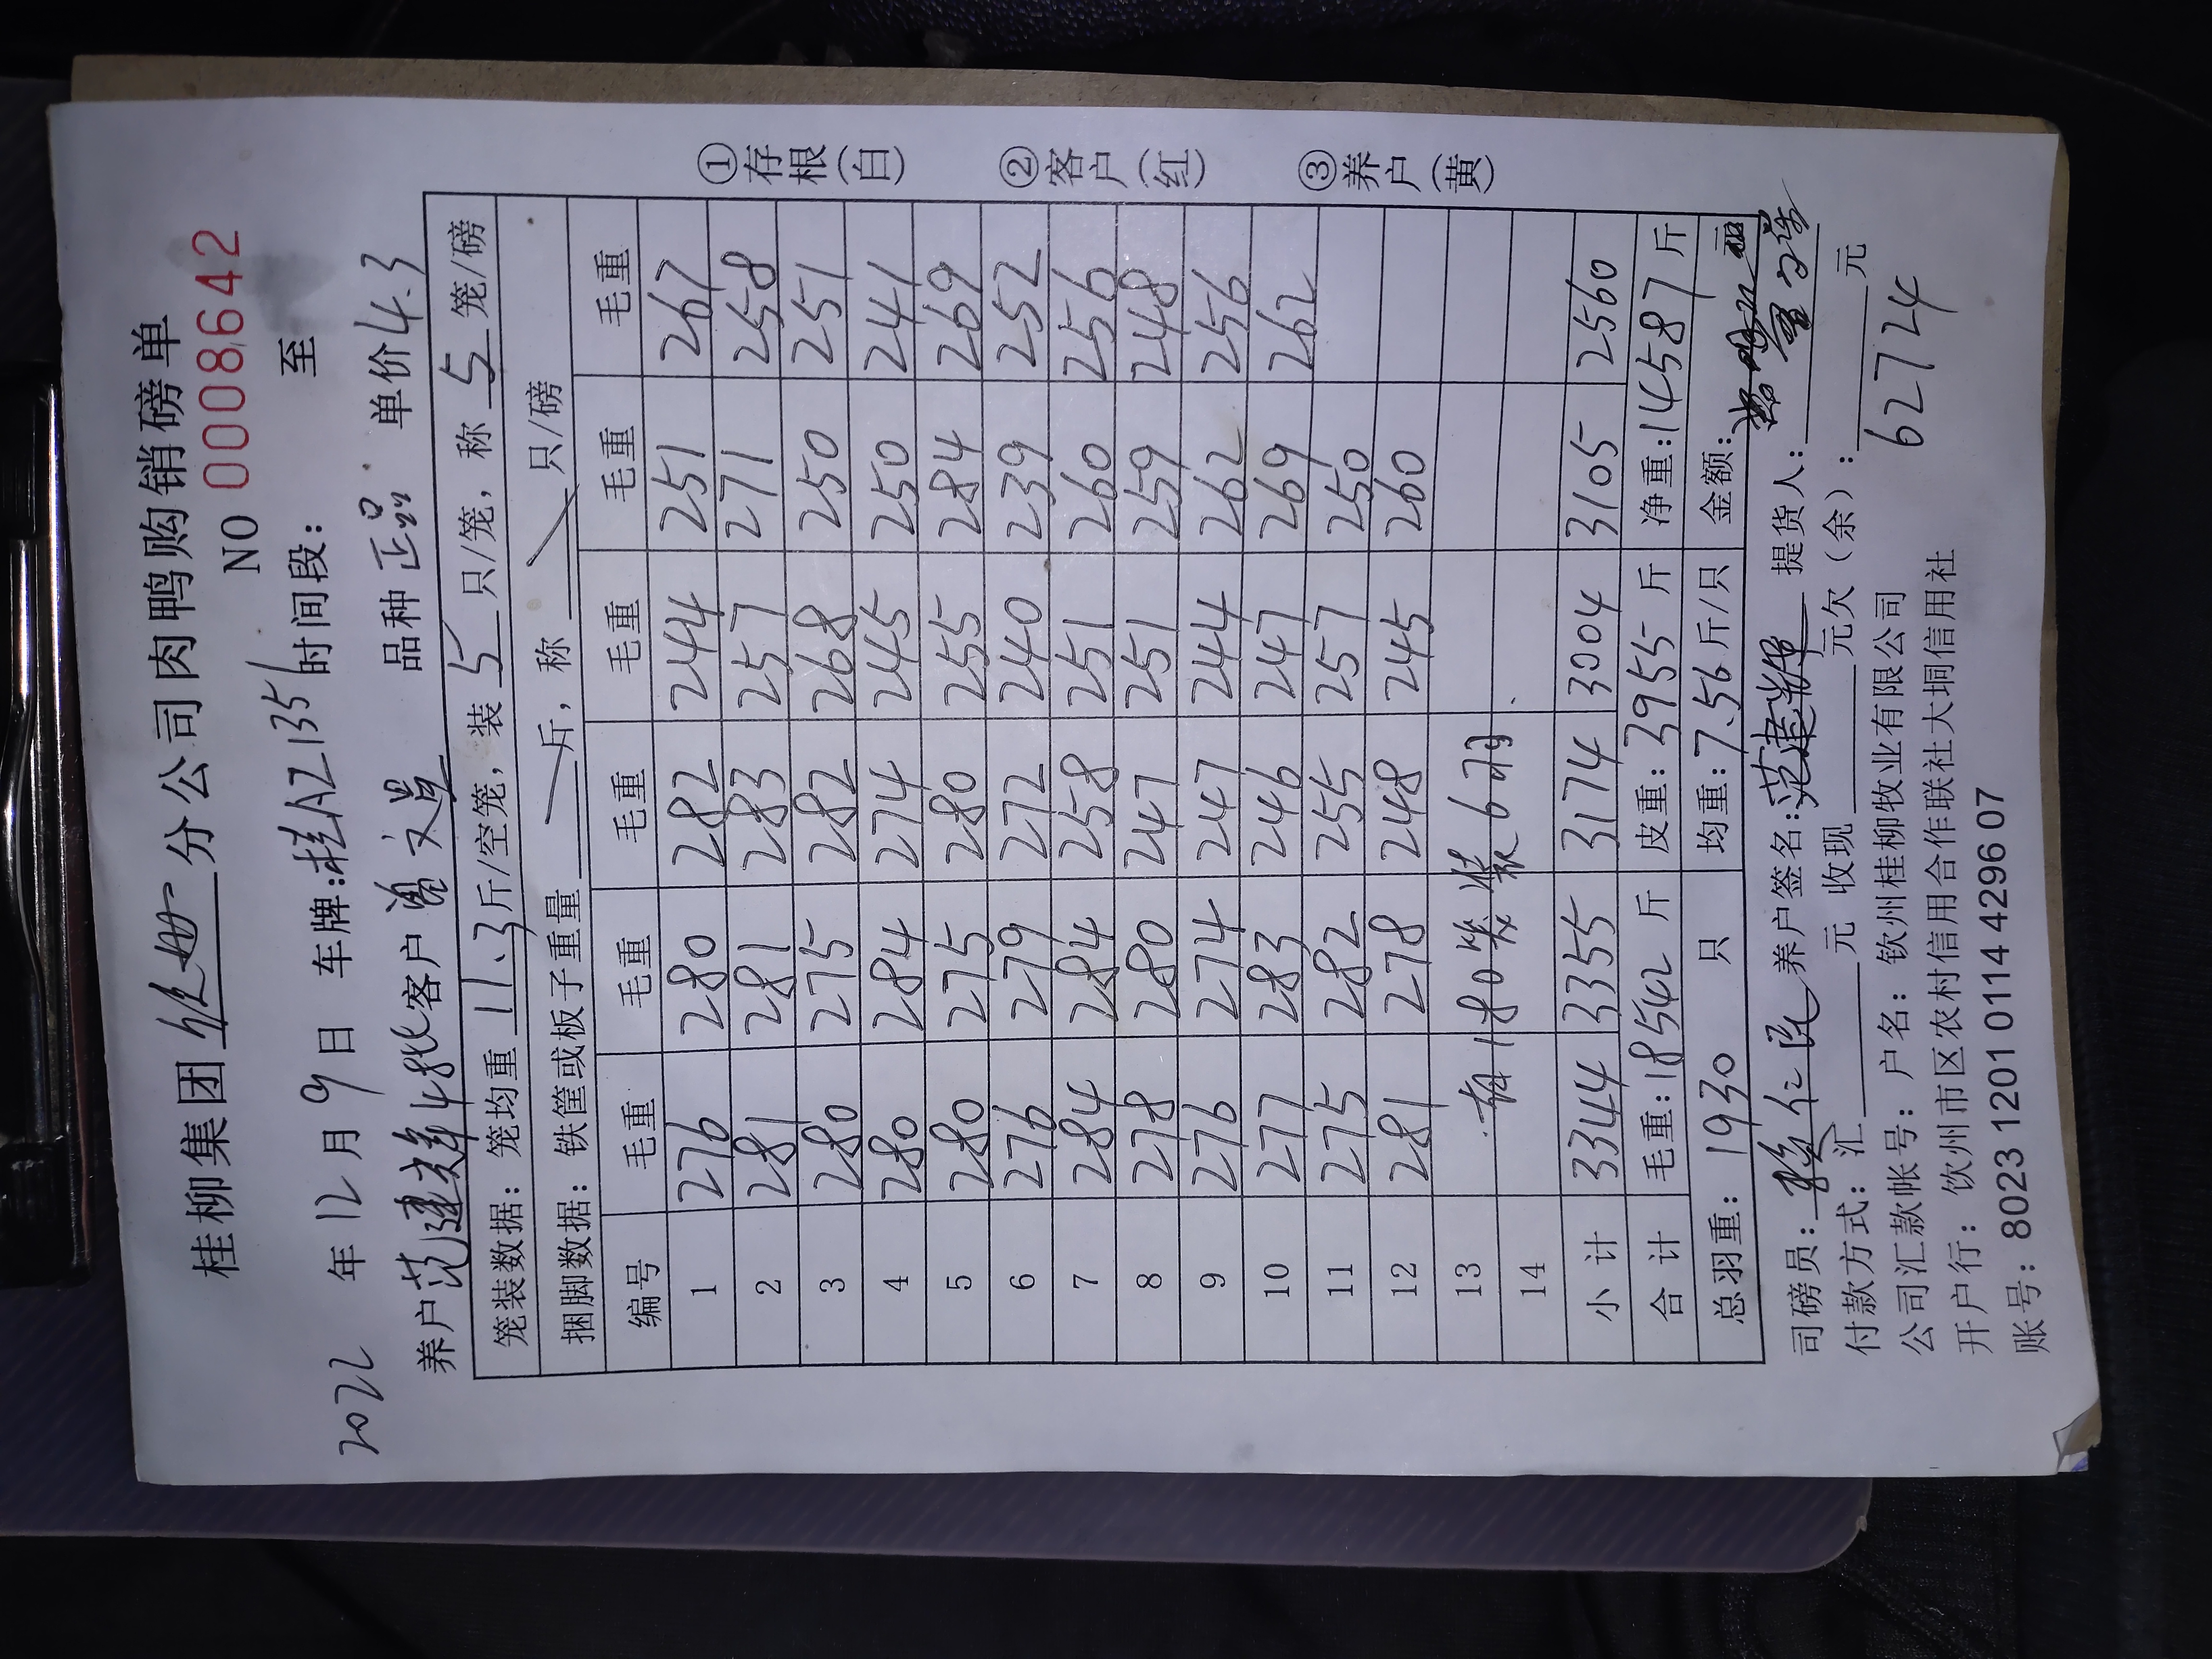 桂柳集团 钦州 分公司肉鸭购销磅单
NO 0008642
2022 年 12 月 9 日 车牌:桂AZ1351 时间段: 至
养户 范建辉 客户 品种 正品 单价 4.3
笼装数据: 笼均重 11.3 斤/空笼, 装 5 只/笼, 称 5 笼/磅
捆脚数据: 铁筐或板子重量 斤, 称 只/磅
编号 毛重 毛重 毛重 毛重 毛重 毛重
1 276 280 282 244 251 267
2 281 281 283 257 271 258
3 280 275 282 268 250 251
4 280 284 274 245 250 241
5 280 275 280 255 284 269
6 276 279 272 240 239 252
7 284 284 258 251 260 256
8 278 280 247 251 259 248
9 276 274 247 244 262 256
10 277 283 246 247 269 262
11 275 282 255 257 250
12 281 278 248 245 260
13 有180笼装6羽
14
小计 3344 3355 3174 3004 3105 2560
合计 毛重:18542 斤 皮重:3955 斤 净重:14587 斤
总羽重: 1930 只 均重:7.56 斤/只 金额: 元
司磅员: 养户签名:范建辉 提货人:
付款方式: 汇 元 收现 元欠(余): 元
62724
公司汇款帐号: 户名: 钦州桂柳牧业有限公司
开户行: 钦州市区农村信用合作联社大垌信用社
账号: 8023 1201 0114 4296 07
①存根(白)
②客户(红)
③养户(黄)